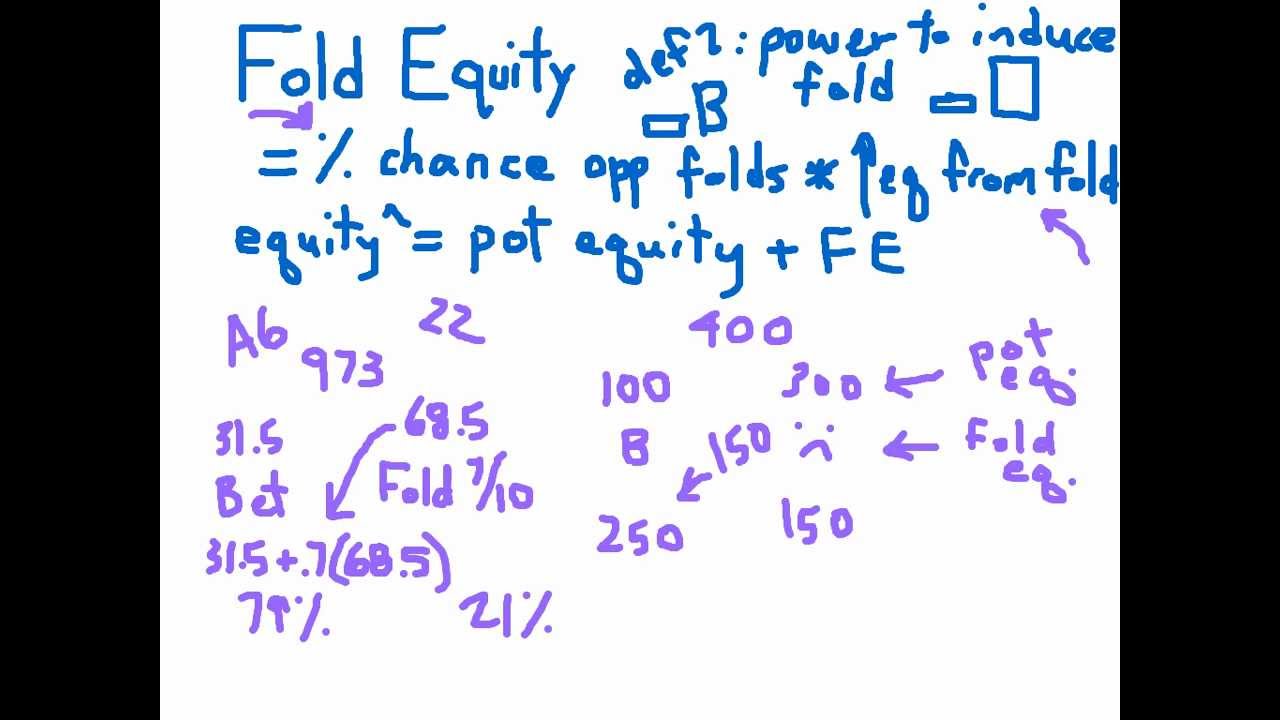 Fold Equity def2: power to induce
fold
B
= % chance opp folds * ↑ eq from fold
equity^ = pot equity + FE
A6 22 400
973
100 300 ← pot eq.
31.5 68.5
B 150 ← Fold eq.
Bet Fold 7/10
250 150
31.5 + .7(68.5)
79% 21%